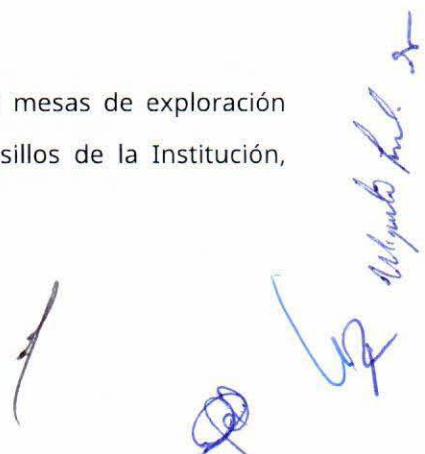 mesas de exploración
sillos de la Institución,